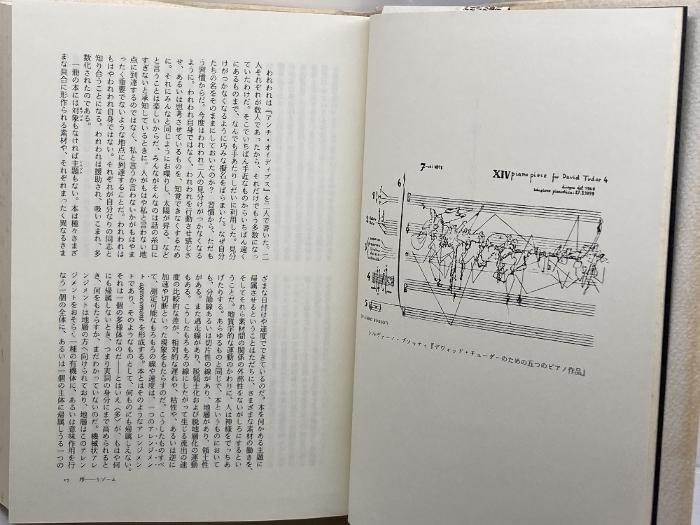 XIV piano piece for David Tudor 4
シルヴァーノ・ブソッティ、『デヴィッド・チューダーのための五つのピアノ作品』
われわれは『アンチ・オイディプス』を二人で書いた。二
人それぞれが数人であったから、それだけでもう多数になっ
ていたわけだ。そこでいちばん手近なものからいちばん遠く
にあるものまで、なんでも手あたりしだいに利用した。見分
けがつかなくなるように巧みな擬名をばらまいた。なぜ自分
たちの名をそのままにしておいたのか? 習慣から、ただも
う習慣からだ。今度はわれわれ二人の見分けがつかなくなる
ように。われわれ自身ではなく、われわれを行動させ感じさ
せ、あるいは思考させているものを、知覚できなくするため
に。それにみんなと同じようにお喋りし、太陽が昇る、など
と言うことは楽しいからだ、みんなそんなのは話の糸口に
すぎないと承知しているときに。人がもはや私と言わない地
点に到達するのではなく、私と言うか言わないかがもはやま
ったく重要でないような地点に到達することだ。われわれは
もはやわれわれ自身ではない。それぞれが自分なりの同志と
知り合うことになる。われわれは援助され、吸いこまれ、多
数化されたのである。
一冊の本には対象もなければ主題もない。本は種々さまざ
まな具合に形作られる素材や、それぞれまったく異なるさま
ざまな日付けや速度でできているのだ。本を何かある主題に
帰属させるということはただちに、さまざまな素材の働きを、
そしてそれら素材間の関係の外部性をないがしろにするとい
うことだ。地質学的な運動のかわりに、人は神様をでっちあ
げたりする。あらゆるものと同じで、本というものにおいて
も、分節線あるいは切片性の線があり、地層があり、領土性
がある。また逃走線があり、脱領土化および脱地層化の運動
もある。こうしたもろもろの線にしたがって生じる流出の速
度の比較的な差が、相対的な遅れや、粘性や、あるいは逆に
加速や切断といった現象をもたらすのだ。こうしたものすべ
て、測定可能なもろもろの線や速度は、一つのアレンジメン
ト agencement を形成する。本とはそのようなアレンジメン
トであり、そのようなものとして、何ものにも帰属しえない。
それは一個の多様体なのだ――とはいえ〈多〉が、もはや何
にも帰属しないとき、つまり実詞の身分にまで高められると
き、何をもたらすか、まだわかっていないのだ。機械状アレ
ンジメントは地層の方へ向けられており、地層はこのアレン
ジメントをおそらく一種の有機体に、あるいは意味作用を行
なう一個の全体に、あるいは一個の主体に帰属しうる一つの
序――リゾーム